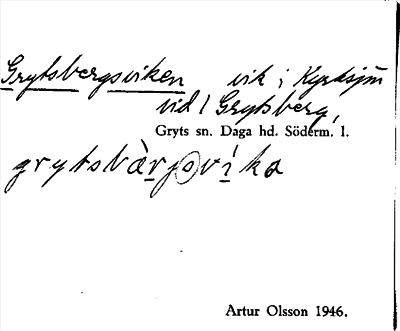 Grytsbergsviken vik i Kyrksjön
vid Grytsberg,
Gryts sn. Daga hd. Söderm. l.
grytsbàrjsvíka
Artur Olsson 1946.